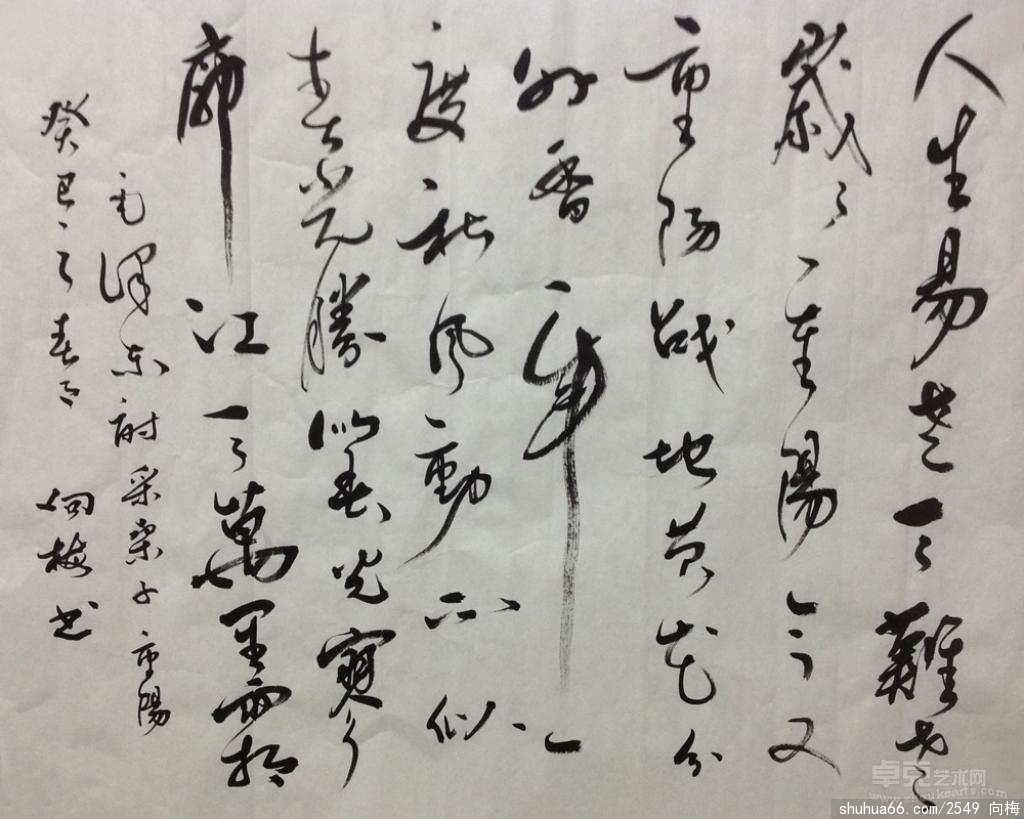 人生易老天難老
歲々重陽今又
重陽戰地黄花分
外香一年一
度秋風動不似
春光勝似春光寥
廓江天萬里霜
毛澤東詞采桑子重陽
癸巳之春 向梅书
卓克艺术网
shuhua66.com/2549 向梅